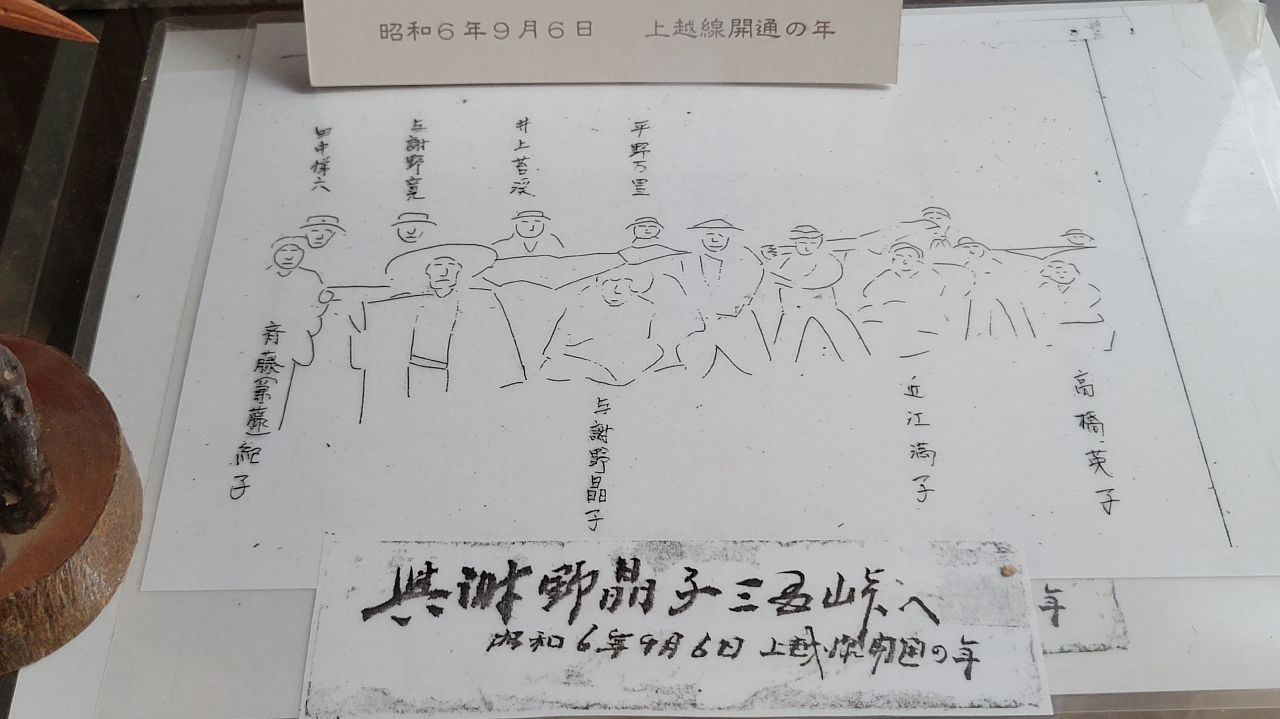 昭和6年9月6日 上越線開通の年
田中悌六
与謝野寛
井上苔渓
平野万里
斉藤(兼藤)紀子
与謝野晶子
近江満子
高橋英子
與謝野晶子三国峠へ
昭和6年9月6日 上越線開通の年
年